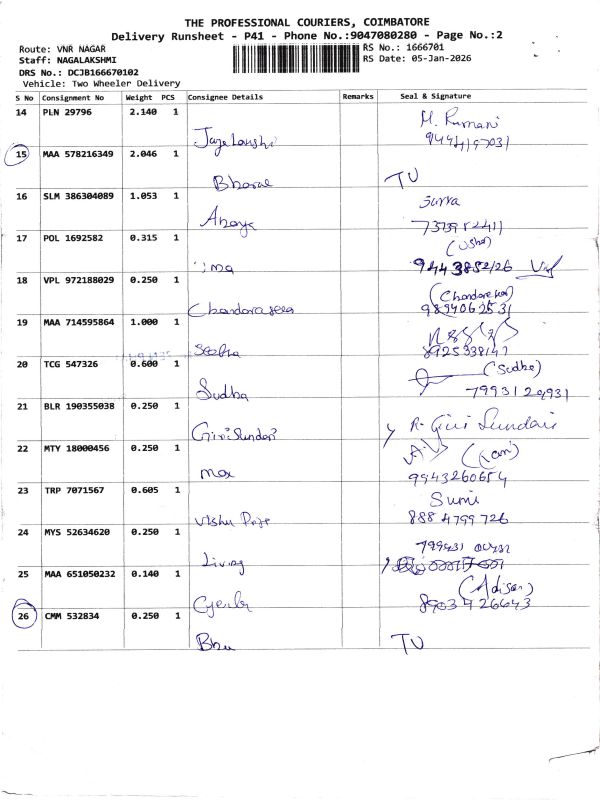 THE PROFESSIONAL COURIERS, COIMBATORE
Delivery Runsheet - P41 - Phone No.:9047080280 - Page No.:2
Route: VNR NAGAR RS No.: 1666701
Staff: NAGALAKSHMI RS Date: 05-Jan-2026
DRS No.: DCJB166670102
Vehicle: Two Wheeler Delivery
S No Consignment No Weight PCS Consignee Details Remarks Seal & Signature
14 PLN 29796 2.140 1
15 MAA 578216349 2.046 1
TU
16 SLM 386304089 1.053 1
17 POL 1692582 0.315 1
(Usha)
18 VPL 972188029 0.250 1
9894062531
19 MAA 714595864 1.000 1
8925338147
20 TCG 547326 0.600 1
Sudha (Sudha)
21 BLR 190355038 0.250 1
R. Giri Sundari
22 MTY 18000456 0.250 1
9943260654
23 TRP 7071567 0.605 1
Sumi
8884799726
24 MYS 52634620 0.250 1
Living
25 MAA 651050232 0.140 1
8903926643
26 CMM 532834 0.250 1
TU